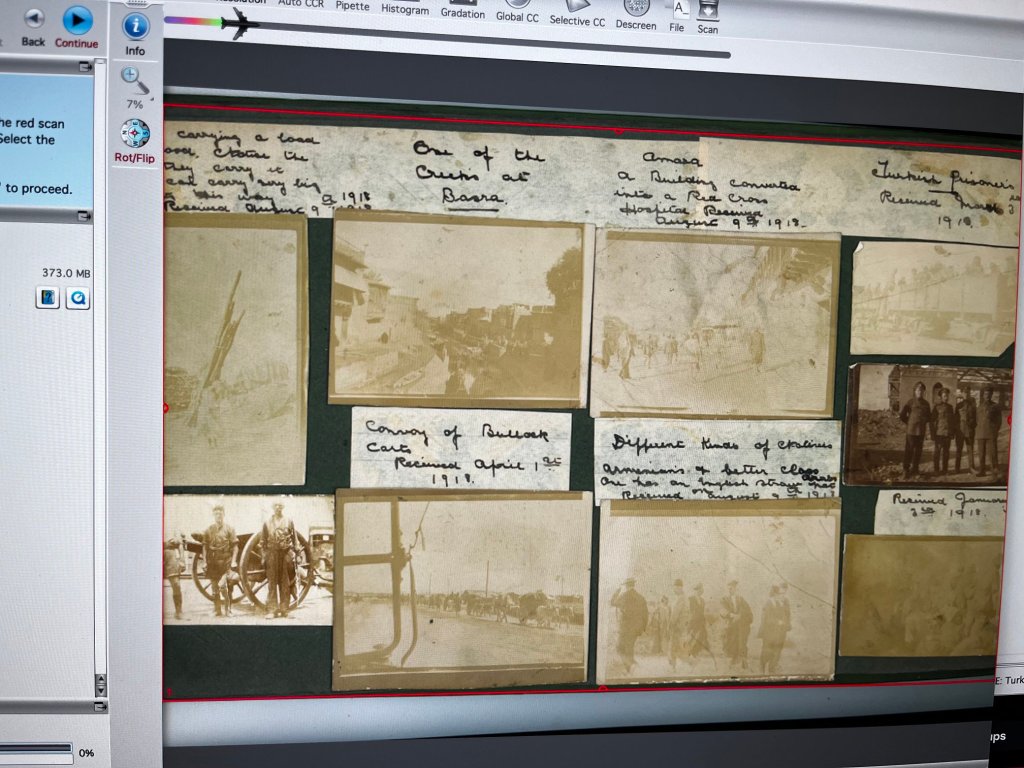 Back
Continue
Info
7%
Rot/Flip
Auto CCR
Pipette
Histogram
Gradation
Global CC
Selective CC
Descreen
File
Scan
he red scan
Select the
' to proceed.
373.0 MB
0%
carrying a load
the
they carry it
can carry very big
1918
Received August 9
One of the
Creeks at
Basra.
Amara
a Building converted
into a Red Cross
Hospital Received
August 9th 1918.
Turkish Prisoners
Received March 3
1918.
Convoy of Bullock
Carts
Received April 1st
1918.
Different Kinds of
Armenians & better class
Arabs
one has an English straw hat
on
Received August 9th 1918
Received January
3rd 1918.
1
E: Turk
ups